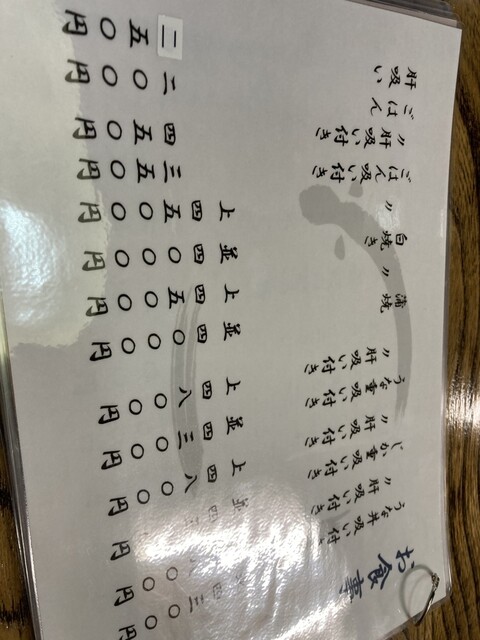 お食事
うな丼 吸い付 四三〇〇円
〃 肝吸い付き 〇円
じか重 吸い付き 並 四三〇〇円
〃 肝吸い付き 上 四八〇〇円
うな重 吸い付き 並 四三〇〇円
〃 肝吸い付き 上 四八〇〇円
蒲焼 並 四〇〇〇円
〃 上 四五〇〇円
白焼き 並 四〇〇〇円
〃 上 四五〇〇円
ごはん 吸い付き 三五〇円
〃 肝吸い付き 四五〇円
ごはん 二〇〇円
肝吸い 二五〇円